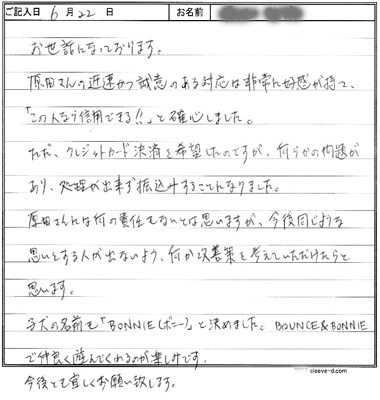 ご記入日 6月22日 お名前
お世話になっております。
原田さんの迅速かつ誠意のある対応は非常に好感が持て、
「この人なら信用できる!!」と確心しました。
ただ、クレジットカード決済を希望したのですが、何らかの問題が
あり、処理が出来ず振込みすることになりました。
原田さんには何の責任もないとは思いますが、今後同じような
思いをする人が出ないよう、何か改善策を考えていただけたらと
思います。
子犬の名前も「BONNIE(ボニー)」と決めました。BOUNCE&BONNIE
で仲良く遊んでくれるのが楽しみです。
今後とも宜しくお願い致します。
sleeve-d.com